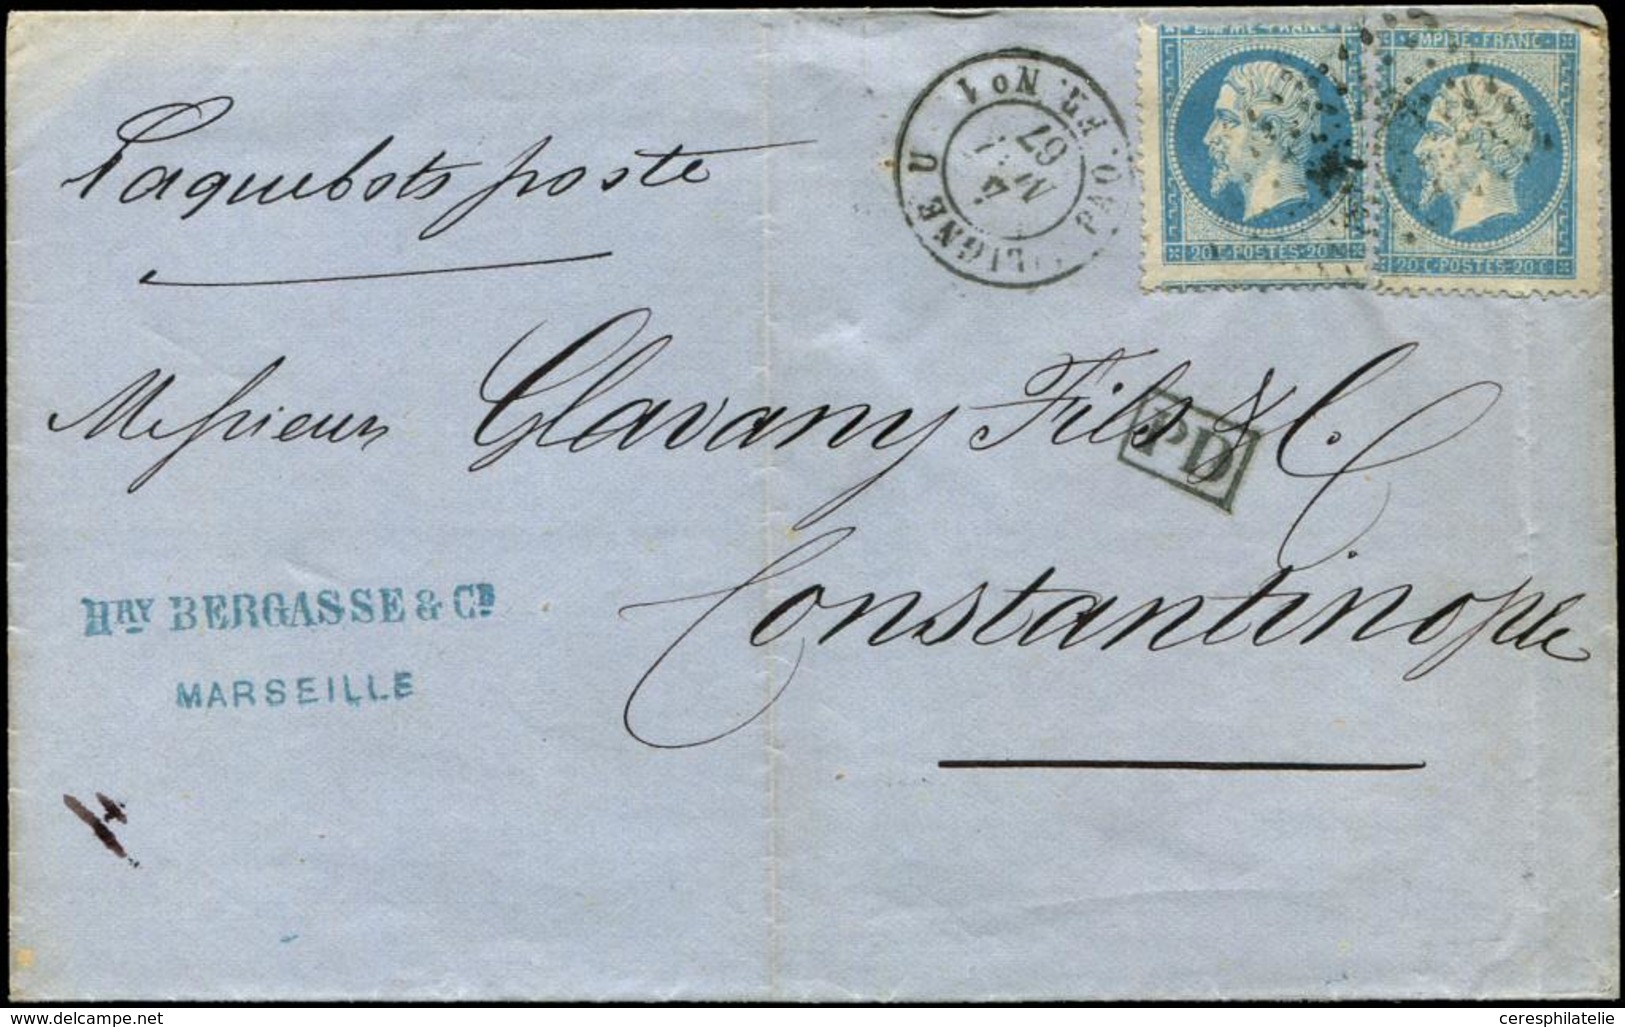 Paquebots poste
LIGNE U PAQ. FR. No 1
4
M
67
EMPIRE FRANC
20 C POSTES 20 C
EMPIRE FRANC
20 C POSTES 20 C
Messieurs Glavany Fils & C.
PD
Constantinople
HRY BERGASSE & CIE
MARSEILLE
www.delcampe.net
ceresphilatelie